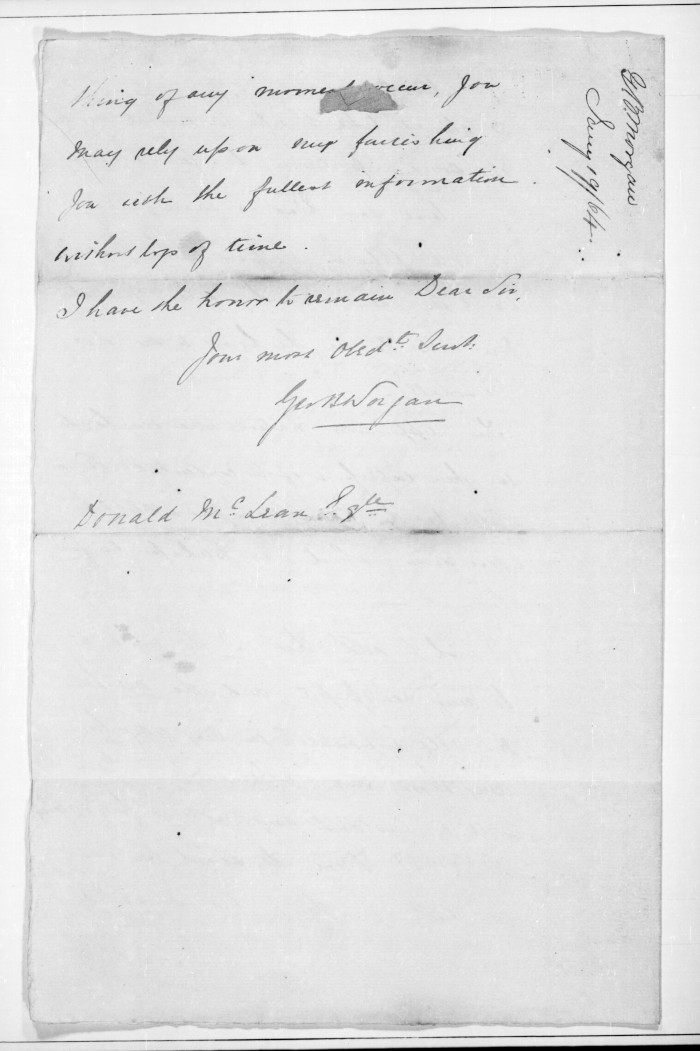 thing of any moment occur, you
may rely upon my furnishing
you with the fullest information
without loss of time.
I have the honor to remain Dear Sir,
Your most Obdt. Servt.
Geo B Worgan
Donald McLean Esqre
Jany 19/64.